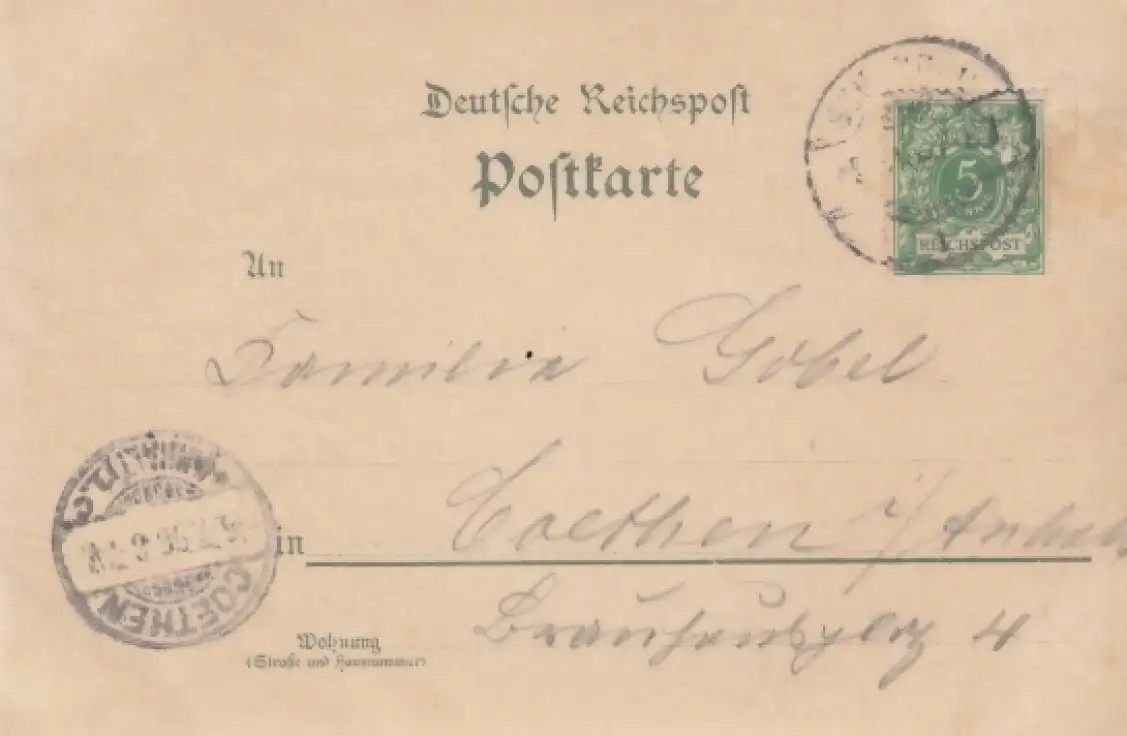 Deutsche Reichspost
Postkarte
5
REICHSPOST
An
Familie Göbel
in Coethen i/Anhalt
4
COETHEN
Wohnung
(Strasse und Hausnummer)